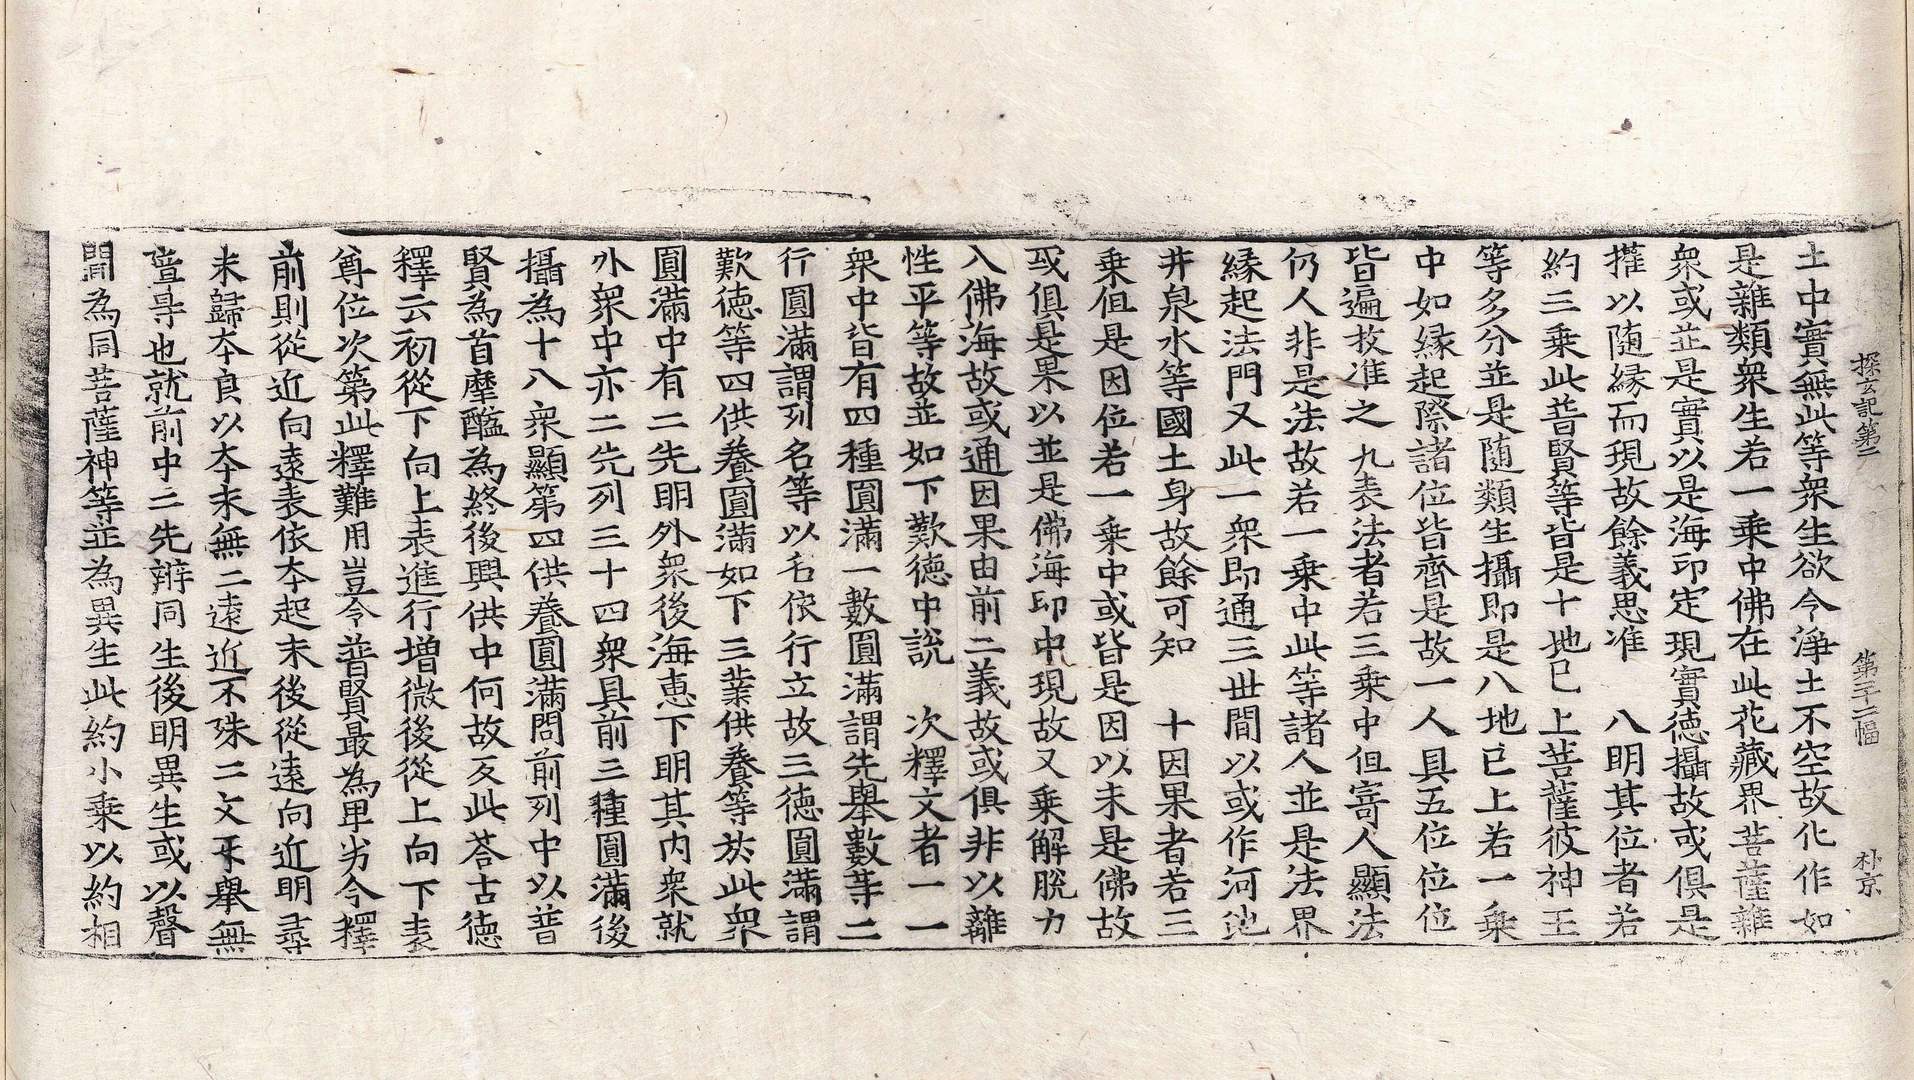 探玄記第二　第二十二幅　朴京
土中實無此等衆生欲令淨土不空故化作如
是雜類衆生若一乘中佛在此花藏界菩薩雜
衆或並是實以是海印定現實德攝故或俱是
權以随緣而現故餘義思准　八明其位者若
約三乘此普賢等皆是十地已上菩薩彼神王
等多分並是随類生攝即是八地已上若一乘
中如縁起際諸位皆齊是故一人具五位位位
皆遍故准之　九表法者若三乘中但寄人顯法
仍人非是法故若一乘中此等諸人並是法界
縁起法門又此一衆即通三世間以或作河池
井泉水等國土身故餘可知　十因果者若三
乘但是因位若一乘中或皆是因以未是佛故
或俱是果以並是佛海印中現故又乘解脫力
入佛海故或通因果由前二義故或俱非以離
性平等故並如下歎德中説　次釋文者一一
衆中皆有四種圓滿一數圓滿謂先舉數等二
行圓滿謂列名等以名依行立故三德圓滿謂
歎德等四供養圓滿如下三業供養等於此衆
圓滿中有二先明外衆後海惠下明其内衆就
外衆中亦二先列三十四衆具前三種圓滿後
攝為十八衆顯第四供養圓滿問前列中以普
賢為首摩醯為終後興供中何故反此荅古德
釋云初從下向上表進行增微後從上向下表
尊位次第此釋難用豈令普賢最為卑劣今釋
前則從近向遠表依本起末後從遠向近明尋
末歸本良以本末無二遠近不殊二文互舉無
壹旱也就前中二先辨同生後明異生或以聲
聞為同菩薩神等並為異生此約小乘以約相